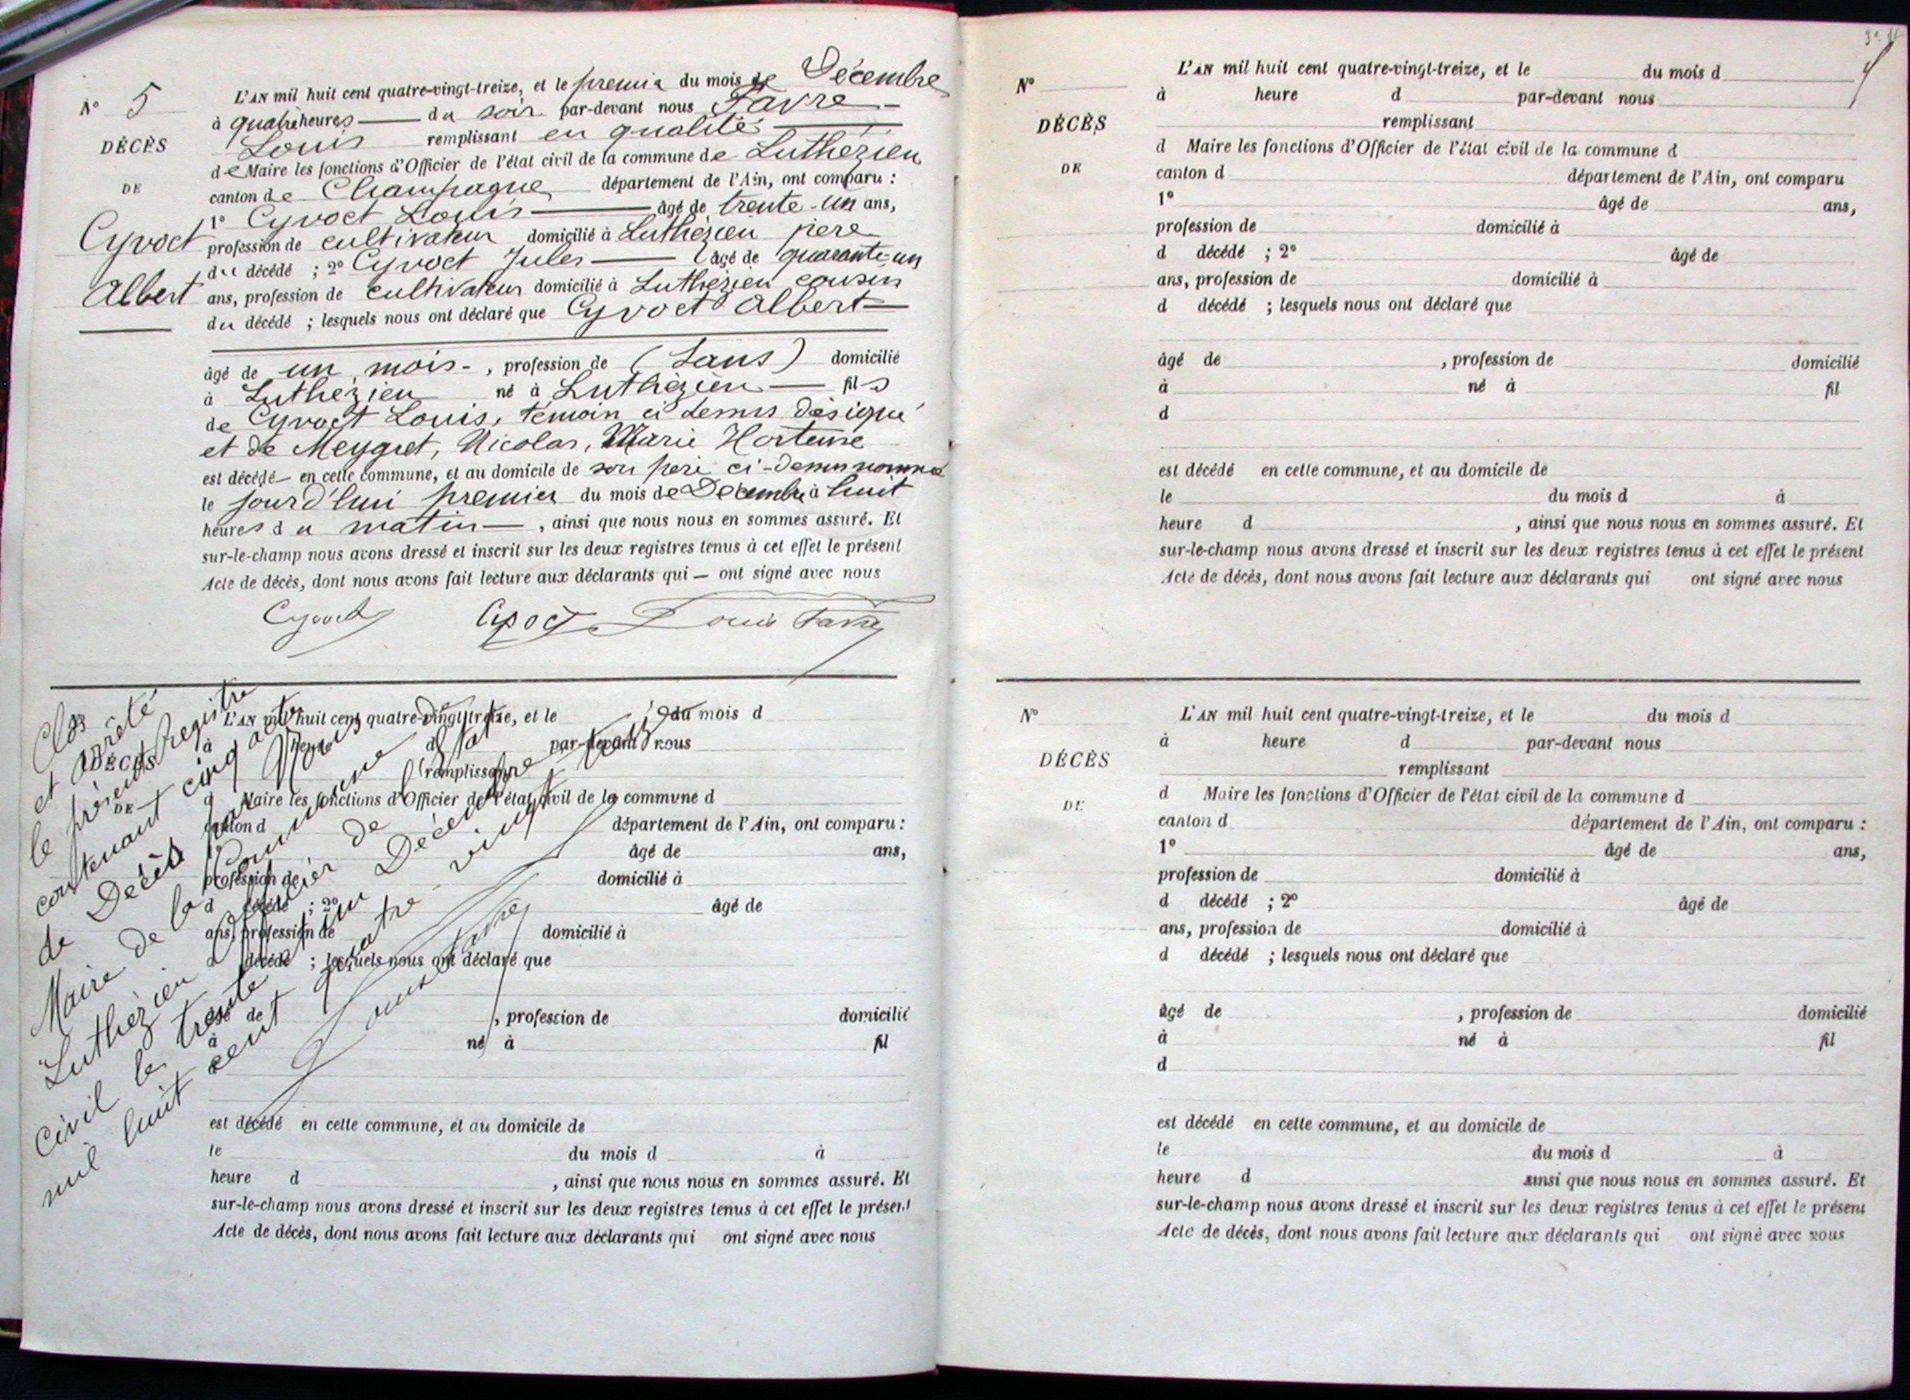 N° 5
DÉCÈS
DE
Cyvoct
Albert
L'AN mil huit cent quatre-vingt-treize, et le premier du mois de Décembre
à quatre heures du soir par-devant nous Favre
Louis remplissant en qualité
de Maire les fonctions d'Officier de l'état civil de la commune de Luthézieu
canton de Champagne département de l'Ain, ont comparu :
1° Cyvoct Louis âgé de trente-un ans,
profession de cultivateur domicilié à Luthézieu père
du décédé ; 2° Cyvoct Jules âgé de quarante-un
ans, profession de cultivateur domicilié à Luthézieu cousin
du décédé ; lesquels nous ont déclaré que Cyvoct Albert
âgé de un mois, profession de (Sans) domicilié
à Luthézieu né à Luthézieu fils
de Cyvoct Louis, témoin ci dessus désigné
et de Meygret, Nicolas, Marie Hortense
est décédé en cette commune, et au domicile de son père ci-dessus nommé
le jourd'hui premier du mois de Décembre à huit
heures du matin, ainsi que nous nous en sommes assuré. Et
sur-le-champ nous avons dressé et inscrit sur les deux registres tenus à cet effet le présent
Acte de décès, dont nous avons fait lecture aux déclarants qui — ont signé avec nous
Cyvoct Cyvoct Louis Favre
Clos et arrêté
le présent Registre
contenant cinq actes
de Décès par Nous
Maire de la Commune de
Luthézieu Officier de l'état
civil le trente et un Décembre
mil huit cent quatre vingt treize
Louis Favre
DÉCÈS
DE
L'AN mil huit cent quatre-vingt-treize, et le du mois d
à heure d par-devant nous
remplissant
d Maire les fonctions d'Officier de l'état civil de la commune d
canton d département de l'Ain, ont comparu :
âgé de ans,
profession de domicilié à
d décédé ; 2° âgé de
ans, profession de domicilié à
décédé ; lesquels nous ont déclaré que
âgé de , profession de domicilié
à né à fil
est décédé en cette commune, et au domicile de
le du mois d à
heure d , ainsi que nous nous en sommes assuré. Et
sur-le-champ nous avons dressé et inscrit sur les deux registres tenus à cet effet le présent
Acte de décès, dont nous avons fait lecture aux déclarants qui ont signé avec nous
N°
DÉCÈS
DE
L'AN mil huit cent quatre-vingt-treize, et le du mois d
à heure d par-devant nous
remplissant
d Maire les fonctions d'Officier de l'état civil de la commune d
canton d département de l'Ain, ont comparu
1° âgé de ans,
profession de domicilié à
d décédé ; 2° âgé de
ans, profession de domicilié à
d décédé ; lesquels nous ont déclaré que
âgé de , profession de domicilié
à né à fil
d
est décédé en cette commune, et au domicile de
le du mois d à
heure d , ainsi que nous nous en sommes assuré. Et
sur-le-champ nous avons dressé et inscrit sur les deux registres tenus à cet effet le présent
Acte de décès, dont nous avons fait lecture aux déclarants qui ont signé avec nous
N°
DÉCÈS
DE
L'AN mil huit cent quatre-vingt-treize, et le du mois d
à heure d par-devant nous
remplissant
d Maire les fonctions d'Officier de l'état civil de la commune d
canton d département de l'Ain, ont comparu :
1° âgé de ans,
profession de domicilié à
d décédé ; 2° âgé de
ans, profession de domicilié à
d décédé ; lesquels nous ont déclaré que
âgé de , profession de domicilié
à né à fil
d
est décédé en cette commune, et au domicile de
le du mois d à
heure d ainsi que nous nous en sommes assuré. Et
sur-le-champ nous avons dressé et inscrit sur les deux registres tenus à cet effet le présent
Acte de décès, dont nous avons fait lecture aux déclarants qui ont signé avec nous